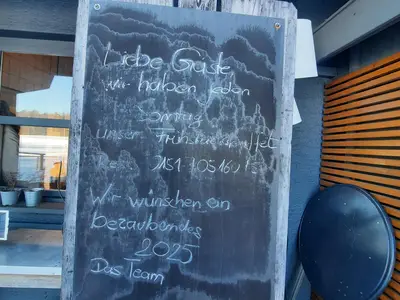 Liebe Gäste
wir haben jeden
Sonntag
unser Frühstücksbuffet
Wir wünschen ein
bezauberndes
2025
Das Team